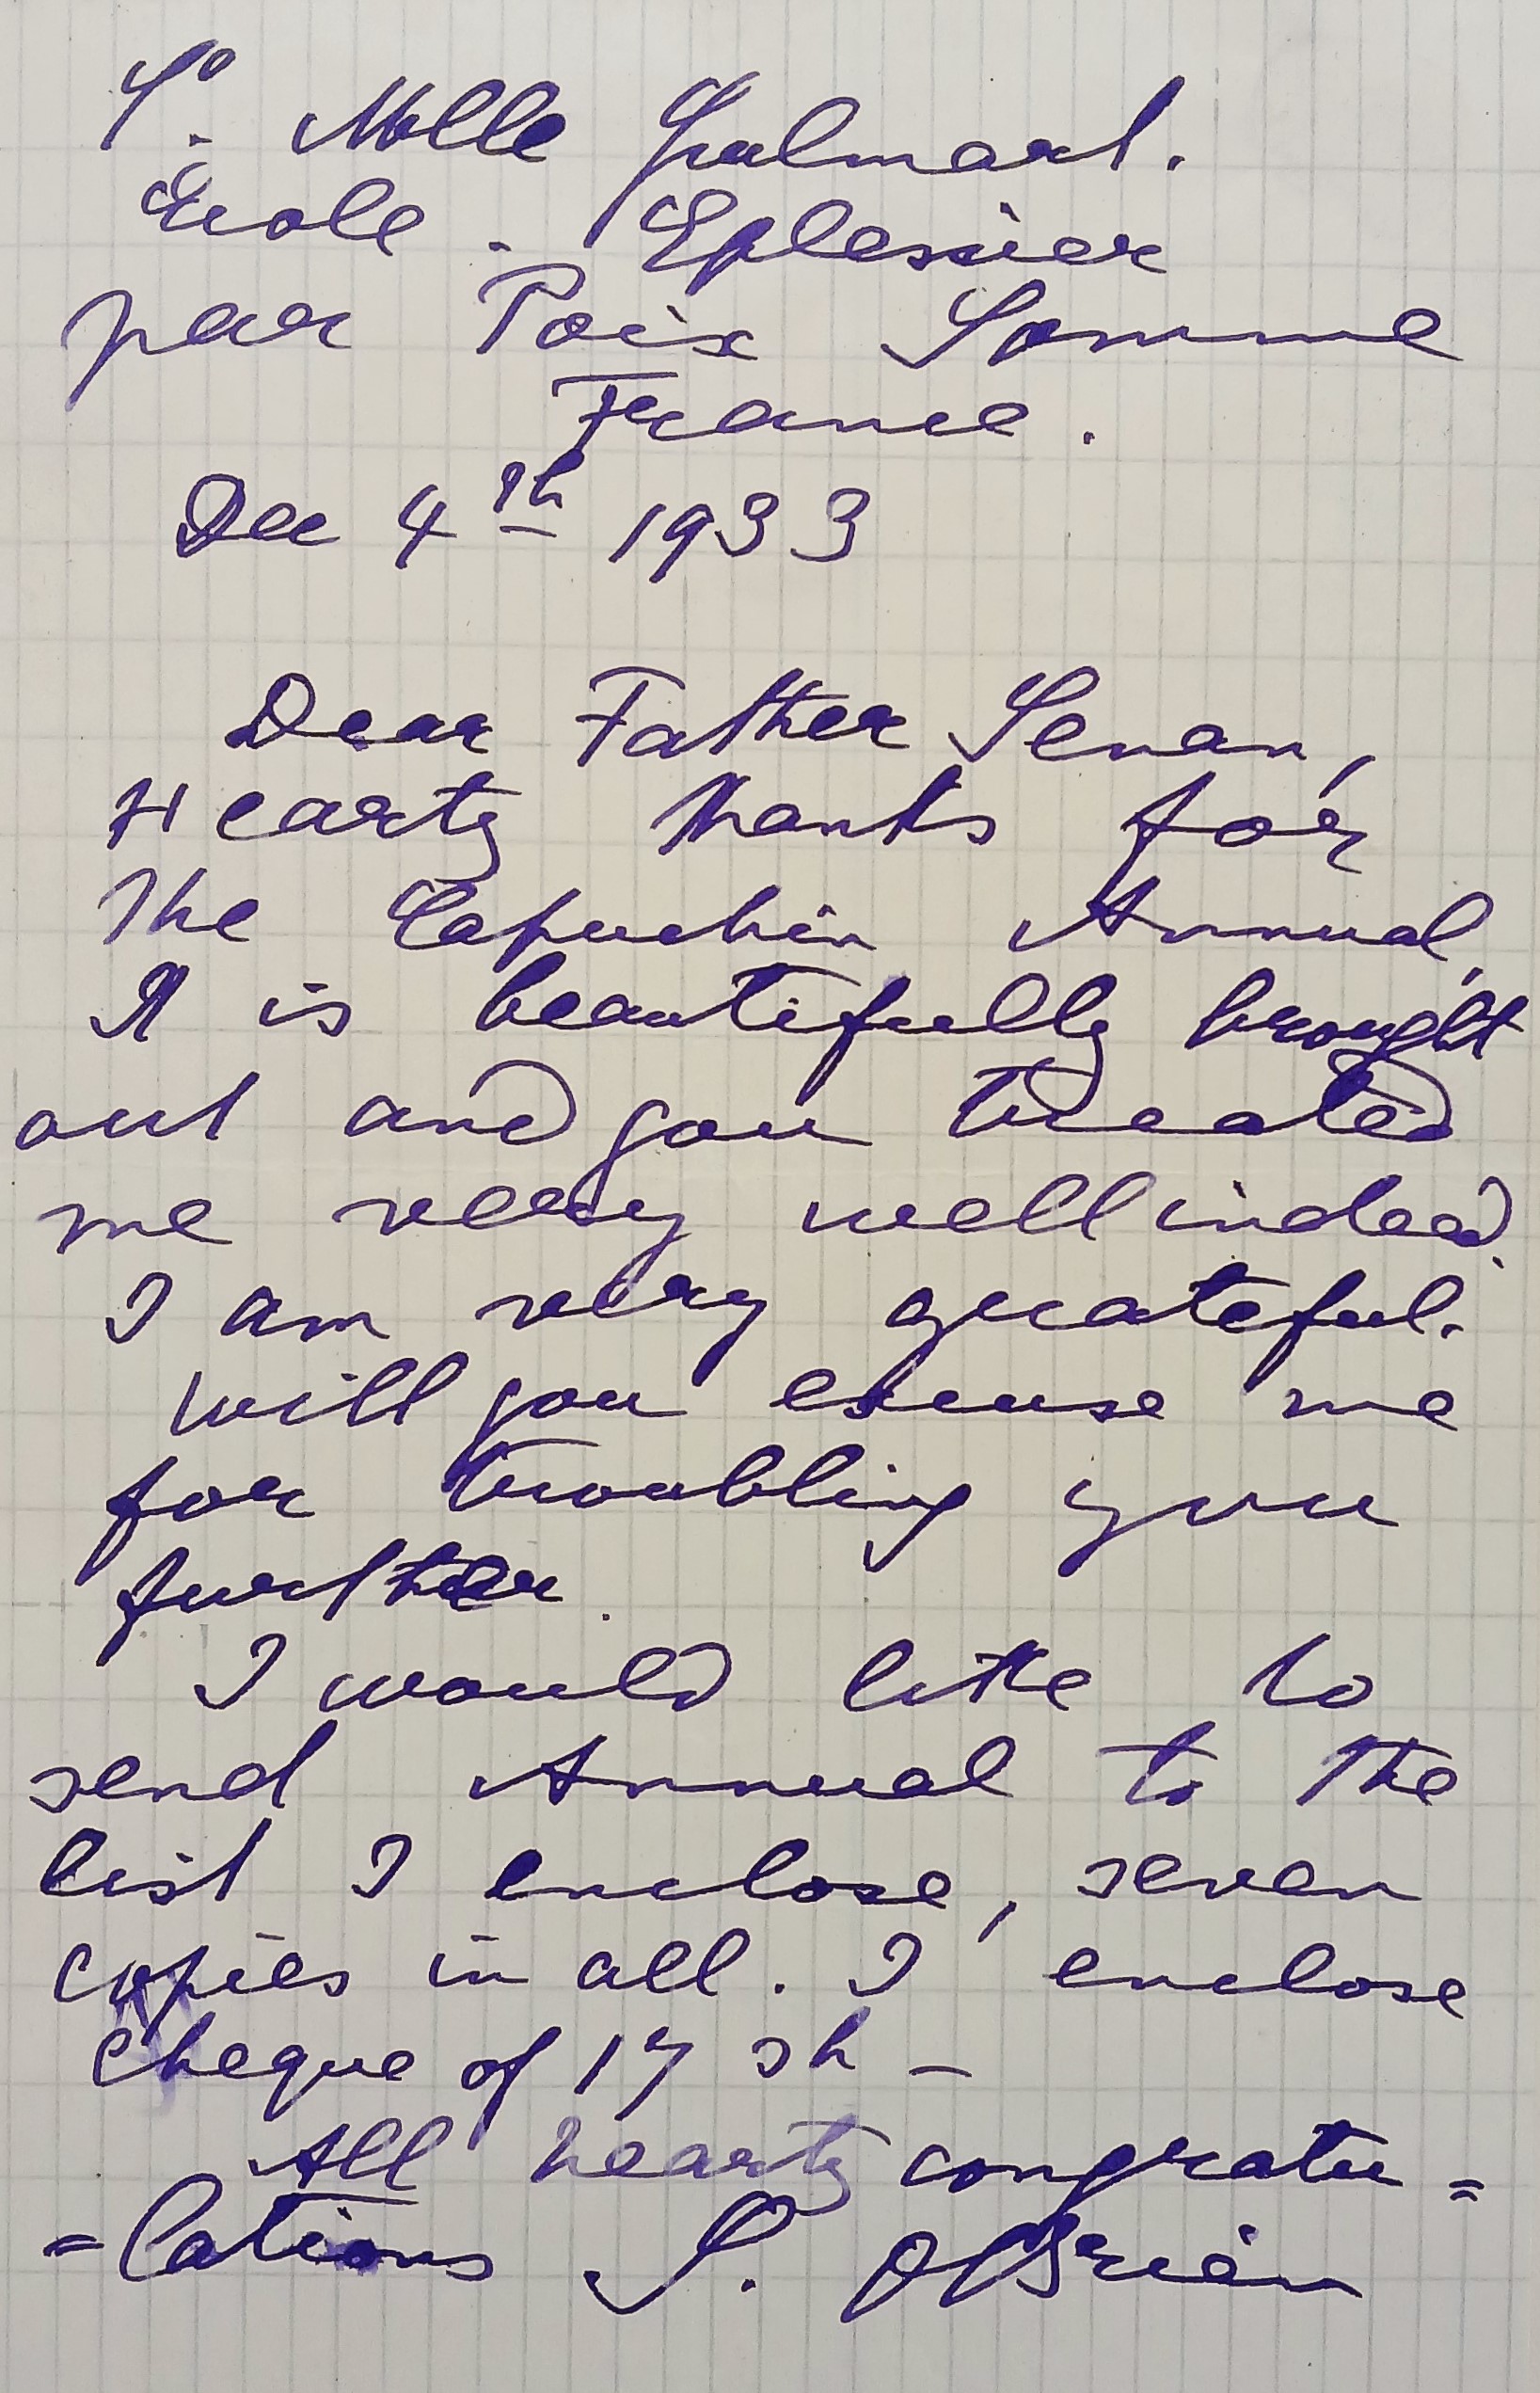 Mlle
École. Eplessier
par Poix Somme
France.
Dec 4th 1933
Dear Father Senan,
Hearty thanks for
the Capuchin Annual,
It is beautifully brought
out and you treated
me very well indeed.
I am very grateful.
Will you excuse me
for troubling you
further.
I would like to
send Annual to the
list I enclose, seven
copies in all. I enclose
cheque of 17 sh –
All hearty congratu=
=lations S. O'Brien